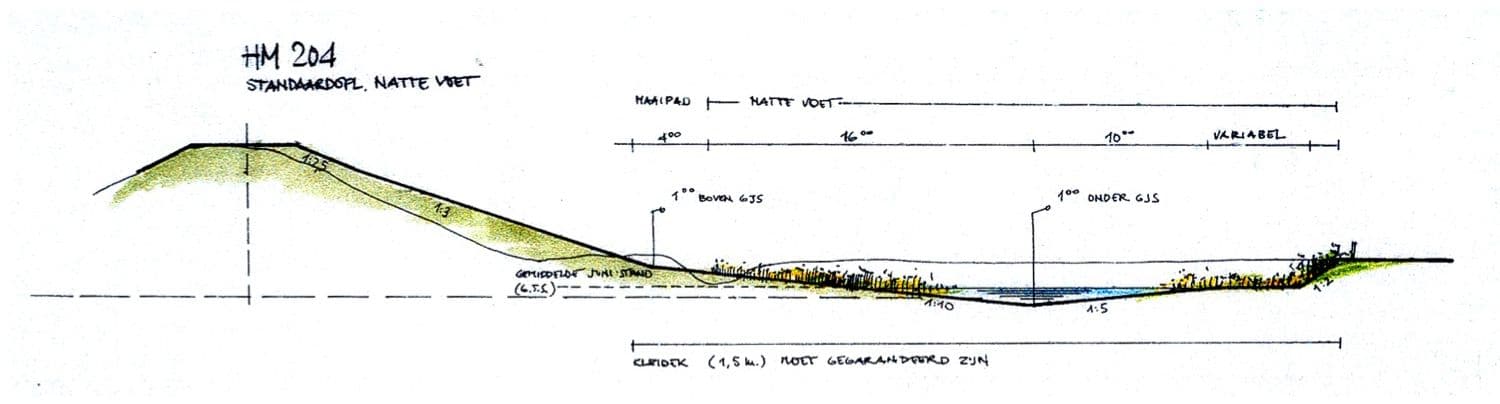 HM 204
STANDAARDOPL. NATTE VOET
MAAIPAD NATTE VOET
4⁰⁰ 16⁰⁰ 10⁰⁰ VARIABEL
1⁰⁰ BOVEN GJS
1⁰⁰ ONDER GJS
1:2,5
1:3
GEMIDDELDE JUNI STAND
(G.J.S)
1:10
1:5
1:2
KLEIDEK (1,5 m.) MOET GEGARANDEERD ZIJN